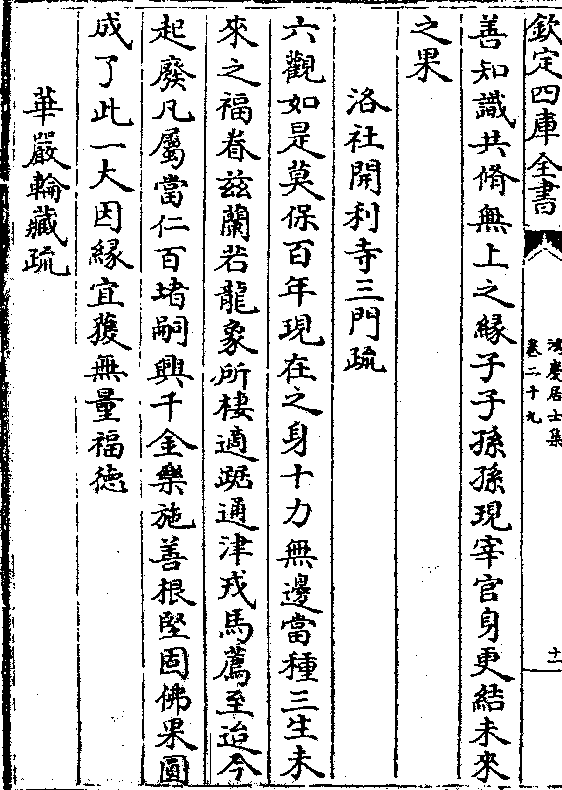 欽定四庫全書
鴻慶居士集
卷二十九
十一
善知識共脩無上之緣子子孫孫現宰官身更結未來
之果
洛社開利寺三門疏
六觀如是莫保百年現在之身十力無邊當種三生未
來之福眷兹蘭若龍象所棲適踞通津戎馬薦至迨今
起廢凡屬當仁百堵嗣興千金樂施善根堅固佛果圓
成了此一大因緣宜獲無量福徳
華嚴輪藏疏